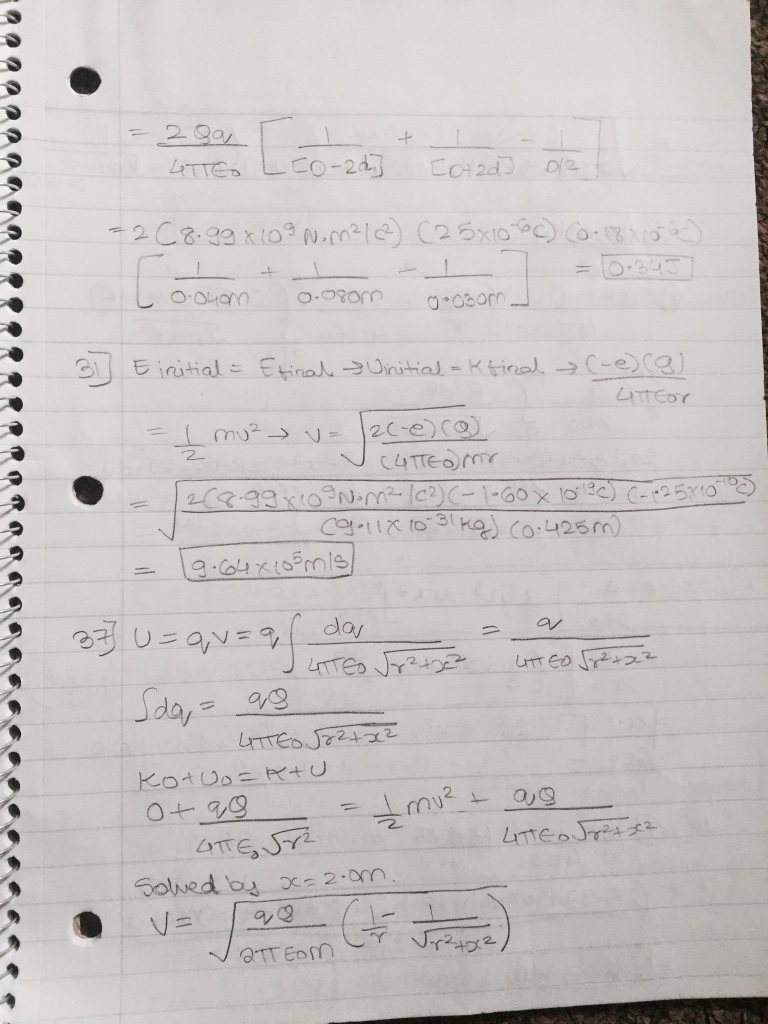 = 2Qq/4πε0 [1/[D-2d] + 1/[D+2d] - 1/D/2]
= 2(8.99×10⁹ N.m²/c²) (25×10⁻⁶c) (0.18×10⁻⁶c)
[1/0.040m + 1/0.080m - 1/0.030m] = 0.34J
31] E initial = E final → U initial = K final → (-e)(Q)/4πε0r
= 1/2 mv² → v = √2(-e)(Q)/(4πε0)mr
= √2(8.99×10⁹N.m²/c²)(-1.60×10⁻¹⁹c)(-1.25×10⁻¹⁰c)/(9.11×10⁻³¹kg)(0.425m)
= 9.64×10⁵m/s
37] U = qV = q∫ dq/4πε0√r²+x² = q/4πε0√r²+x²
∫dq = qQ/4πε0√r²+x²
K0+U0=K+U
0+ qQ/4πε0√r² = 1/2 mv² + qQ/4πε0√r²+x²
Solved by x=2.0m.
V = √qQ/2πε0m (1/r - 1/√r²+x²)